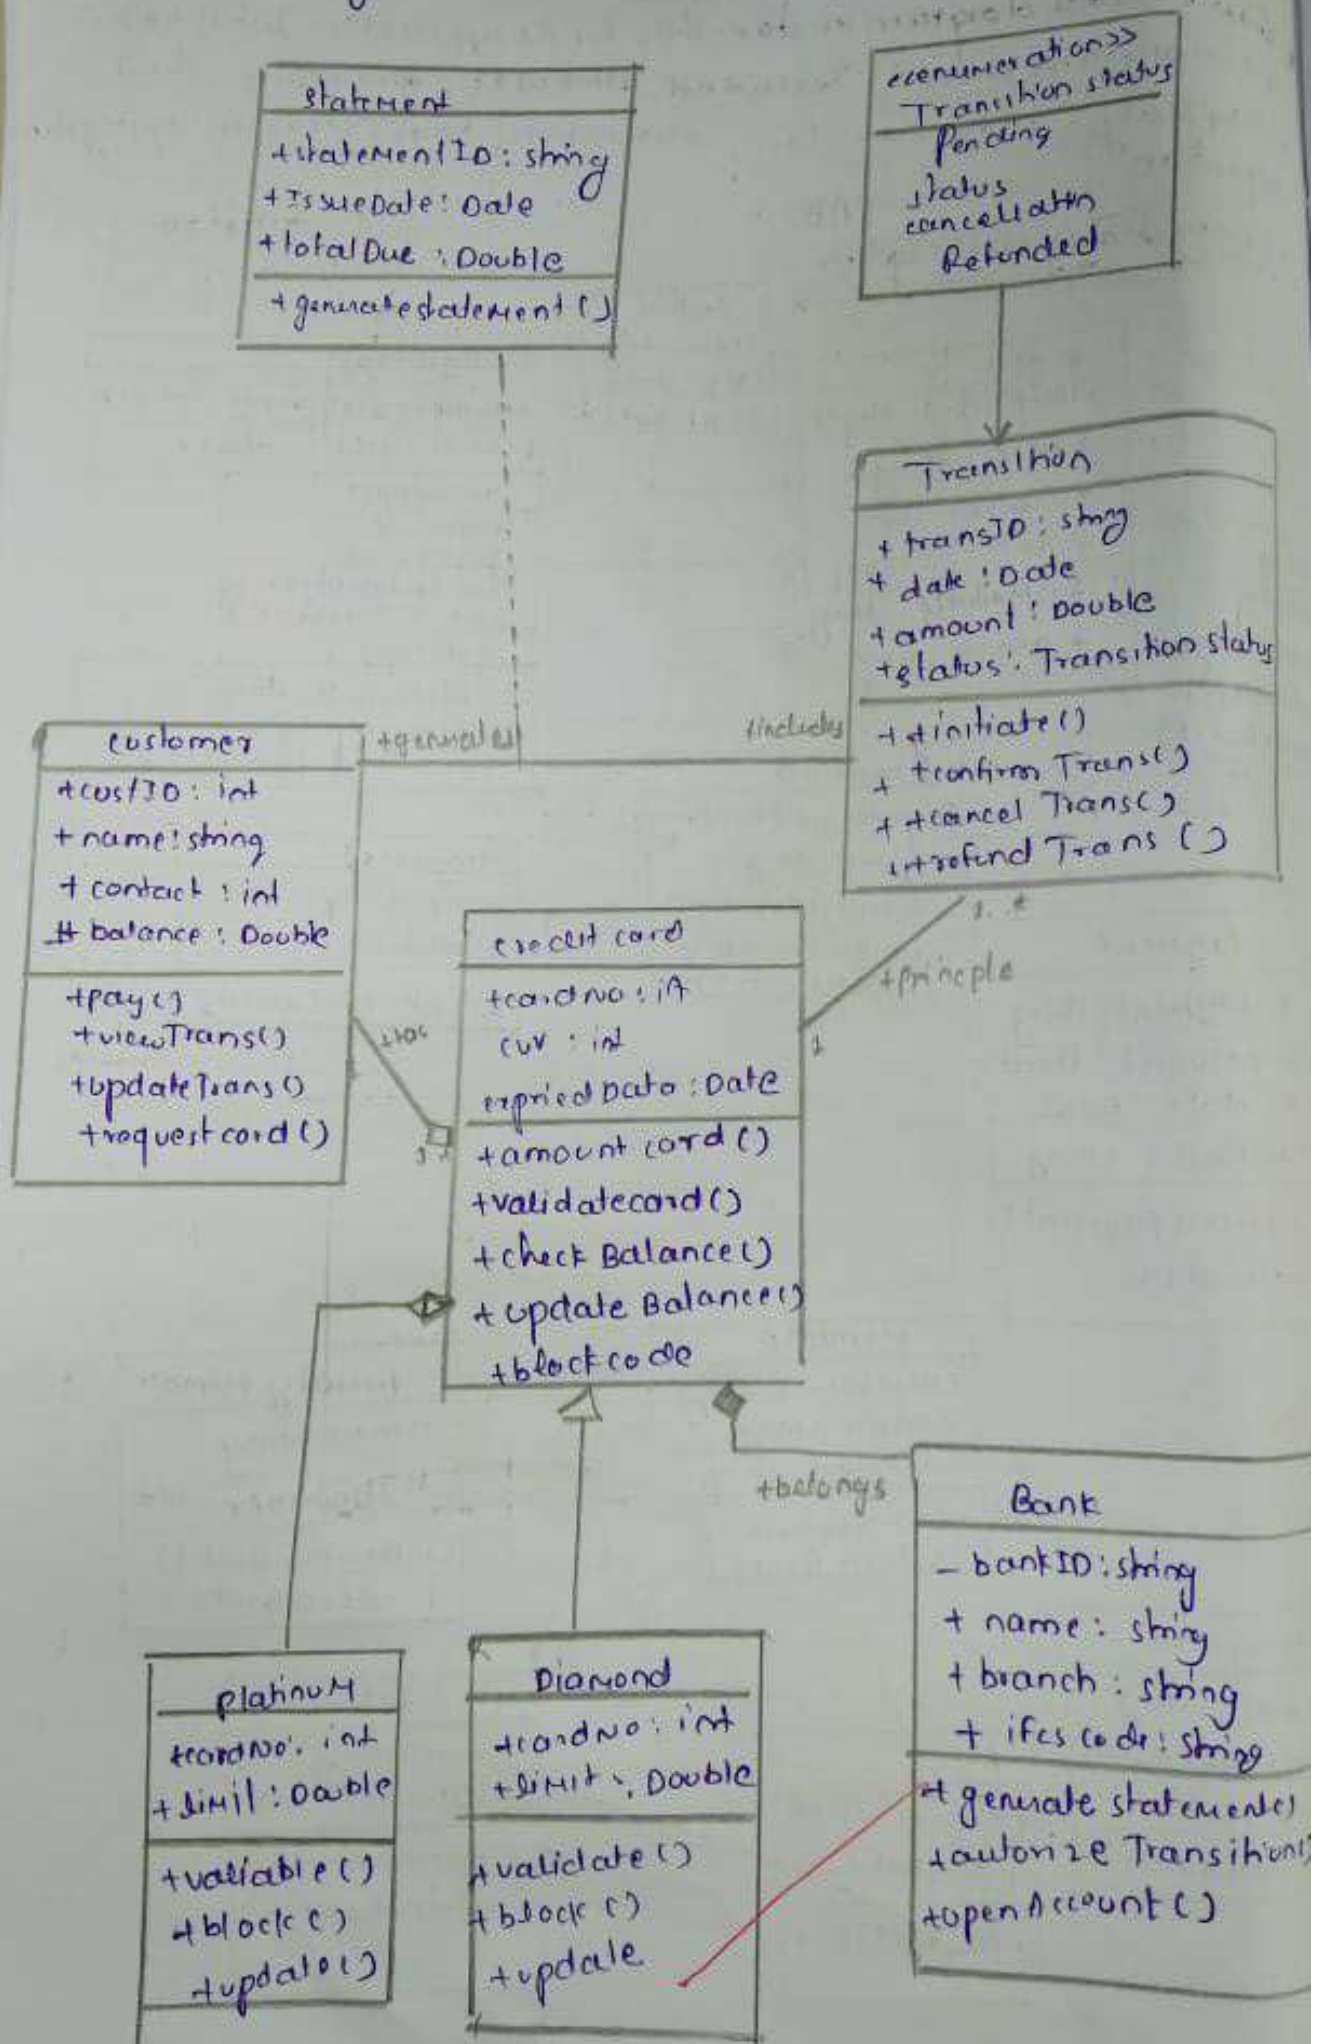 statement
+statementID: string
+IssueDate: Date
+totalDue: Double
+generatestatement()
<<enumeration>>
Transition status
Pending
status
cancellation
Refunded
Transition
+ transID: string
+ date: Date
+amount: Double
+status: Transition status
++initiate()
+ +confirm Trans()
+ +cancel Trans()
++refund Trans ()
+generates
+includes
customer
+custID: int
+name: string
+ contact: int
# balance: Double
+pay()
+viewTrans()
+updateTrans()
+requestcard()
+principle
1..*
1
credit card
+cardNo: int
cvv: int
expried Date: Date
+amount card()
+validatecard()
+check Balance()
+ update Balance()
+block code
+belongs
Bank
- bankID: string
+ name: string
+ branch: string
+ ifcs code: string
+ generate statement()
+autorize Transition()
+openAccount()
platinum
+cardNo: int
+ limit: Double
+valiable()
+block()
+update()
Diamond
+cardNo: int
+limit: Double
+validate()
+block()
+update